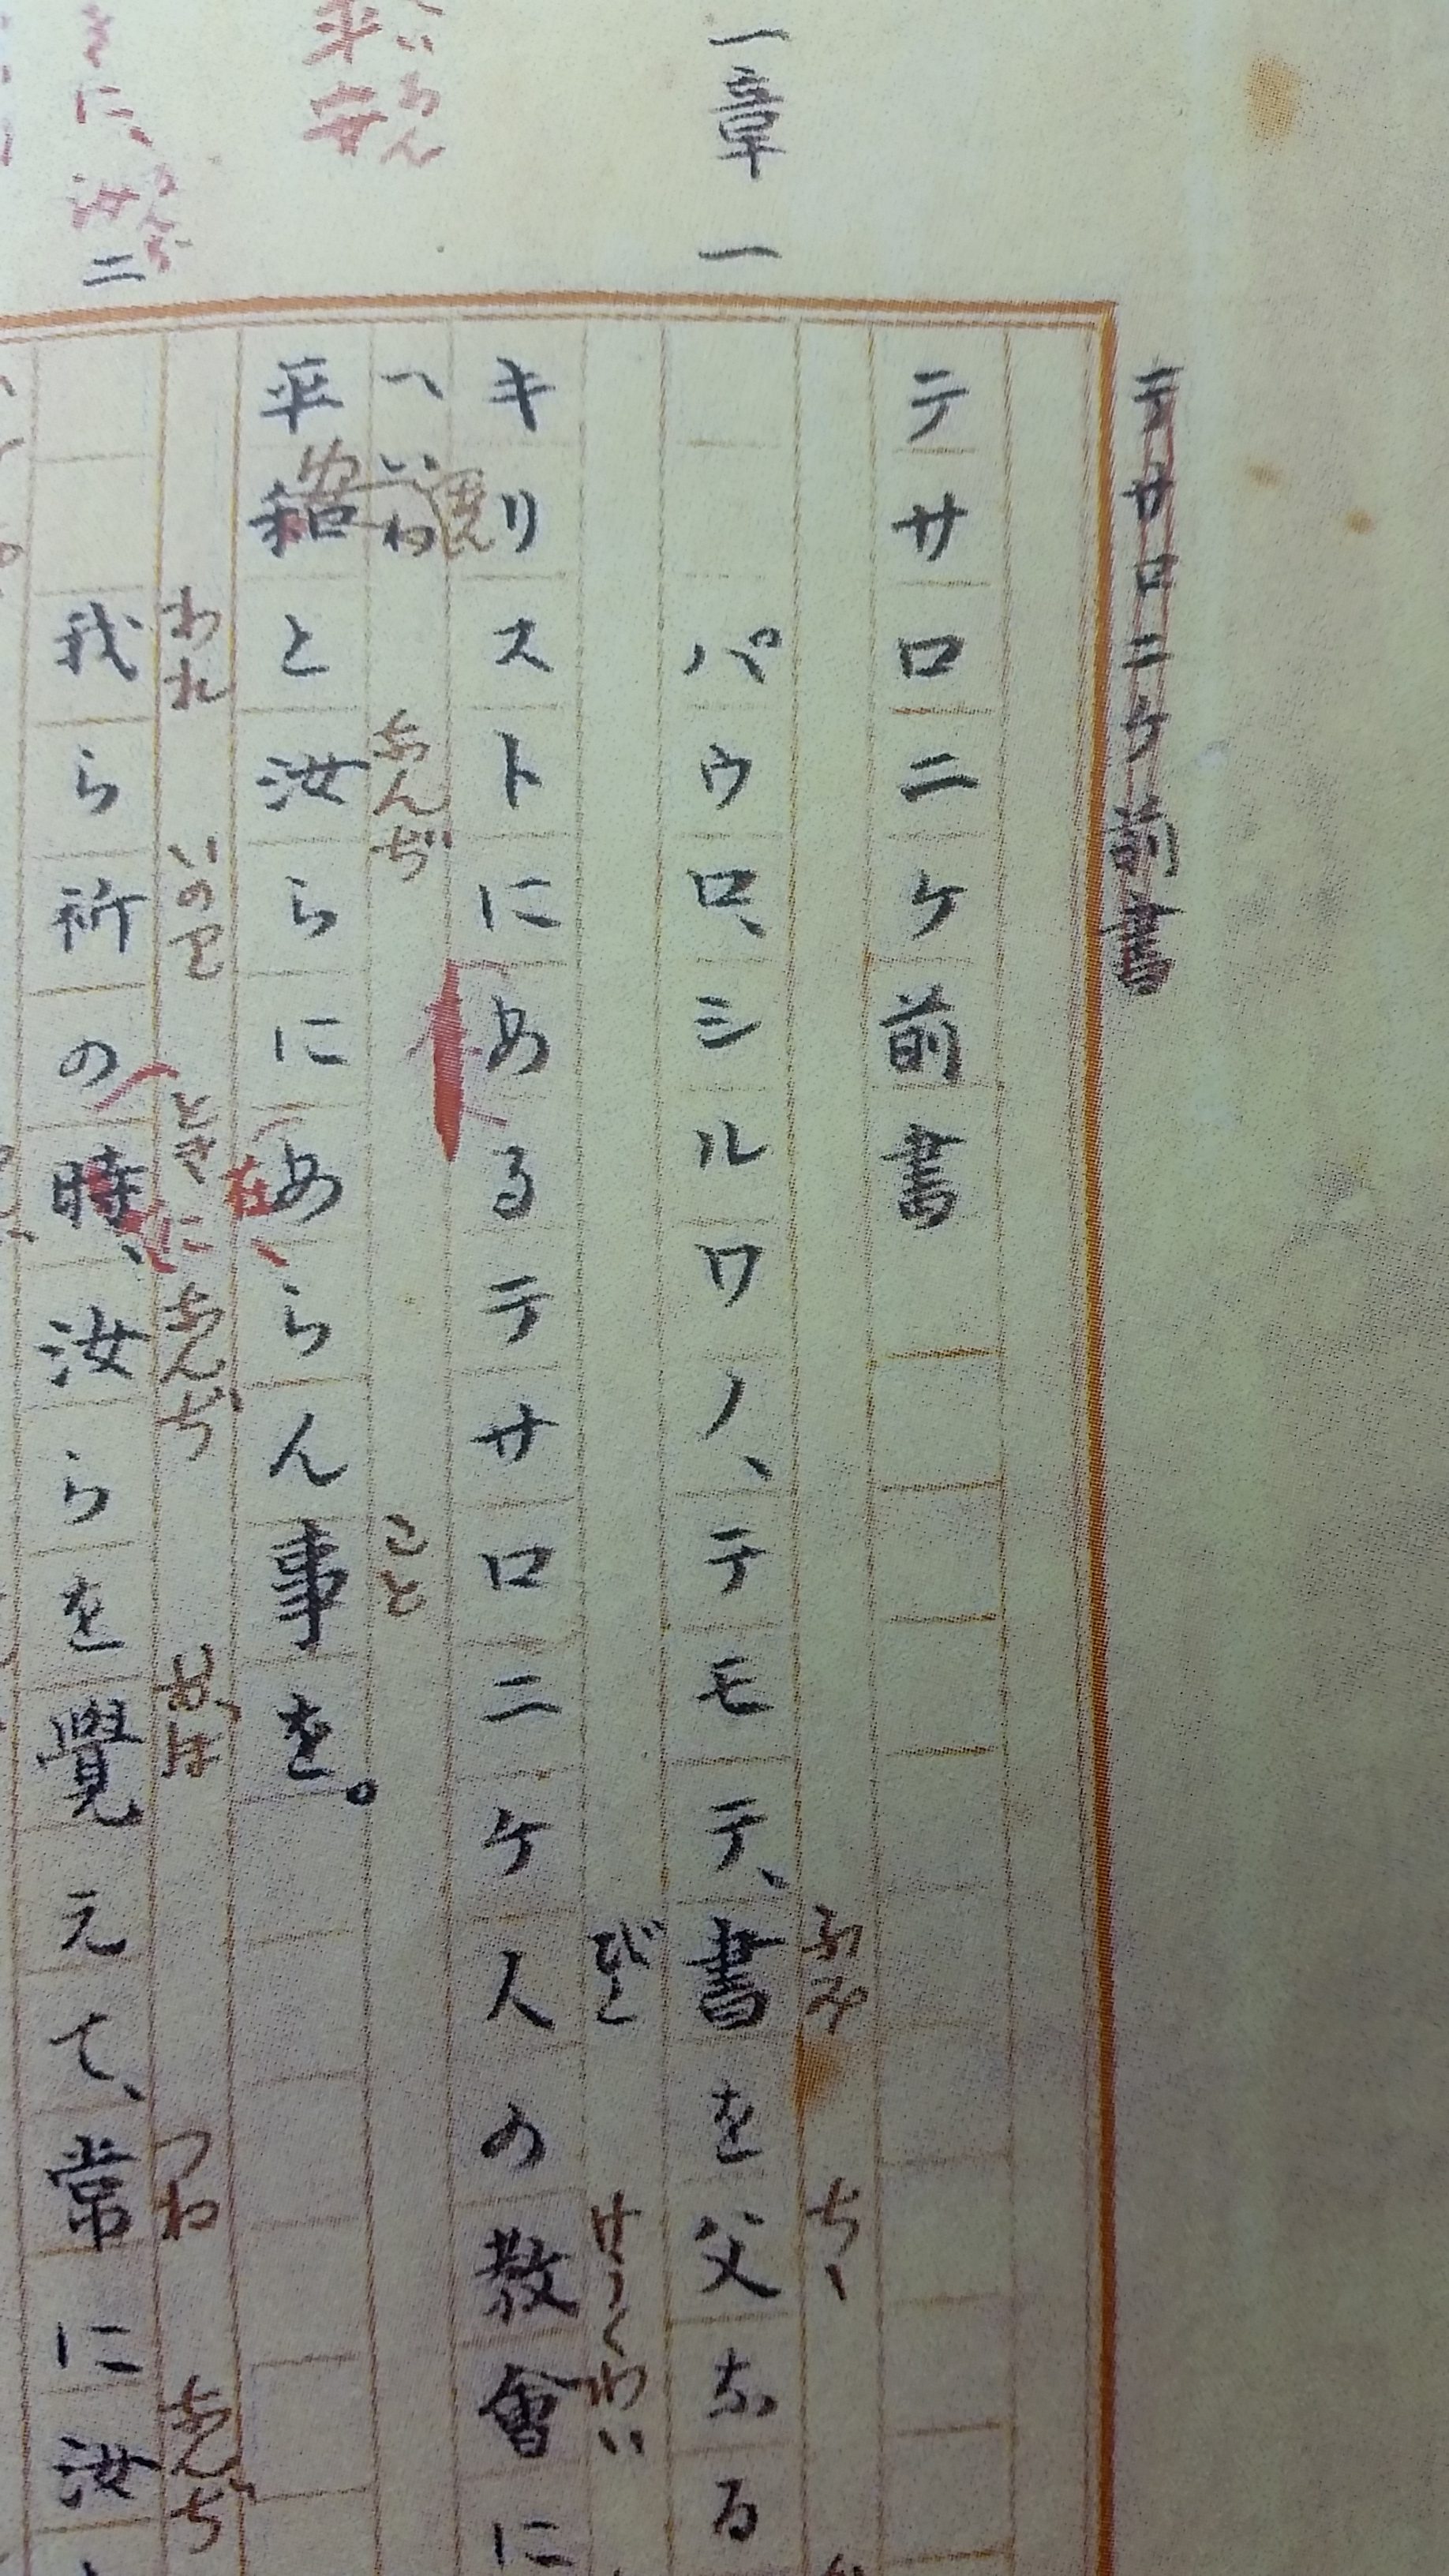 テサロニケ前書
テサロニケ前書
一章 一
パウロ、シルワノ、テモテ、書を父なる
ふみ ちゝ
キリストにあるテサロニケ人の教會に
びと けうくわい
平和と汝らにあらん事を。
へいわ なんぢ こと
平安 へいあん
在
二
我ら祈の時、汝らを覺えて、常に汝
われ いのり とき に なんぢ おぼ つね なんぢ
きに、汝 なんぢ